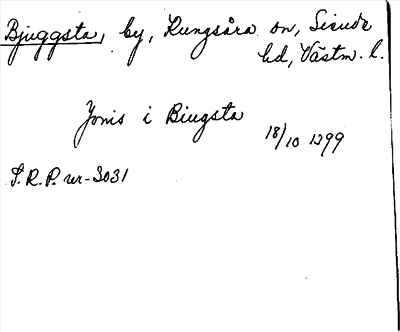 Bjuggsta, by, Kungsåra sn, Siende
hd, Västm. l.
Jonis i Biugsta
18/10 1399
S.R.P. nr 3031